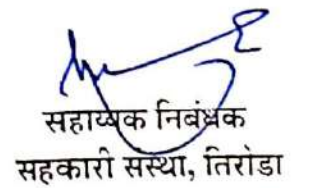 सहाय्यक निबंधक
सहकारी संस्था, तिरोडा